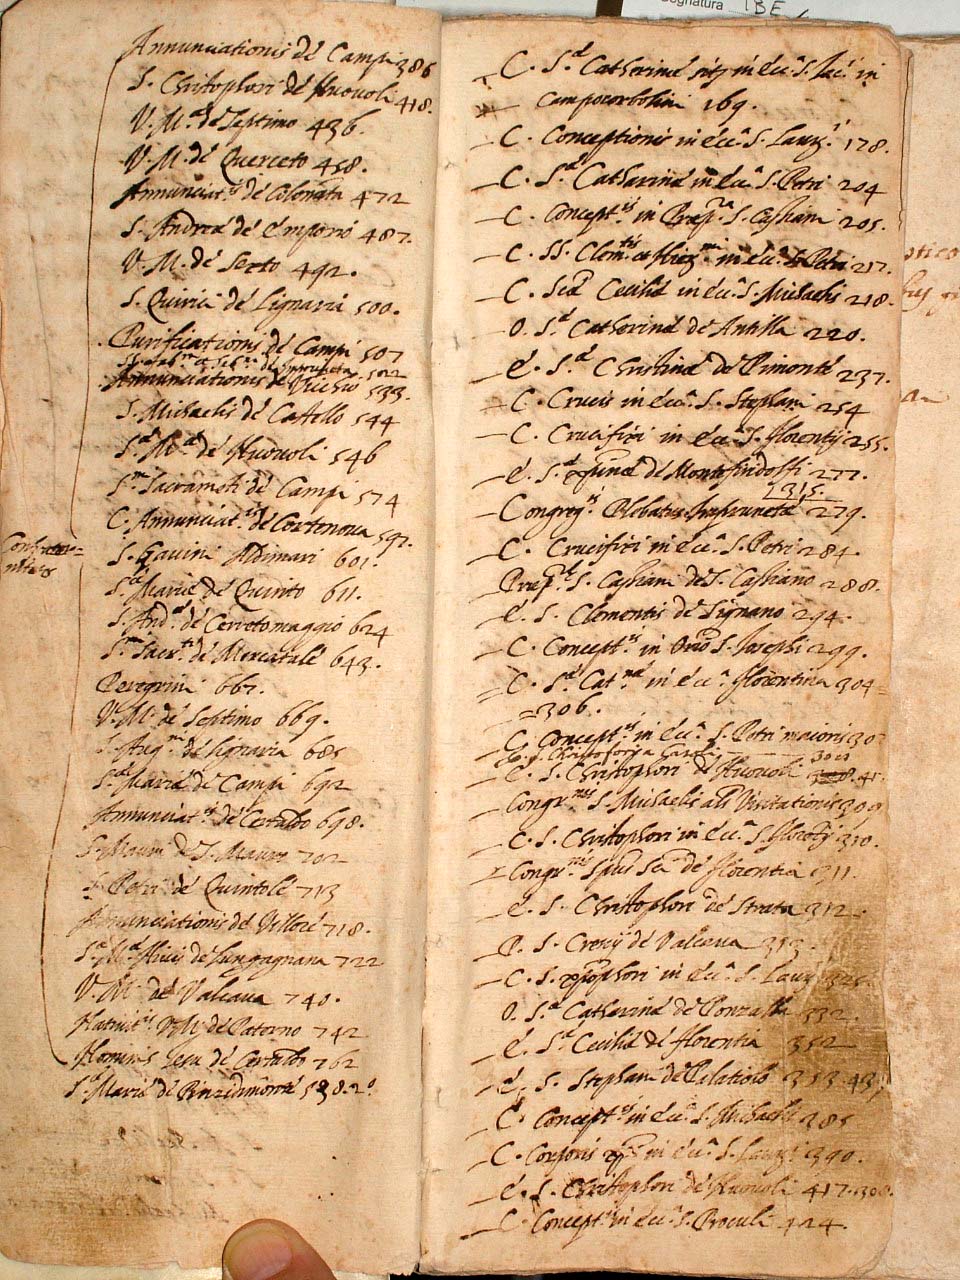 Segnatura IBE
Annunciationis de Campi 386
S. Christophori de Nuovoli 418.
V. M. de Septimo 436.
V. M. de Querceto 458.
Annunciat.is de Colonata 472
S. Andreae de Emporio 487.
V. M. de Sexto 492.
S. Quirici de Lignaria 500.
Purificationis de Campi 507
de Impruneta 522
Annunciationis de Vicchio 533.
S. Michaelis de Castello 544
S.ae M.ae de Nuovoli 546
S.mi Sacramti de Campi 574
C. Annunciat.is de Cortenova 597.
S. Gavini Adimari 601.
S.ae Mariae de Quinto 611.
S. And. de Cerretomaggio 624
S.mi Sacr.ti de Mercatale 643.
Peregrini 667.
V. M. de Septimo 669.
S. Aug.ni de Lignaria 685
S.ae Mariae de Campi 692
Annunciat.is de Certaldo 698.
S. Mauri de S. Mauro 702
S. Petri de Quintole 713
Annunciationis de Villore 718.
S.a M.a Nivis de Lungagnana 722
V. M. de Valcava 740.
Nativit.is V. M. de Paterno 742
Nominis Jesu de Certaldo 762
S.ae Mariae de
C. S.ae Catherinae in Ecc.a S. Iac.i in
Campocorbolini 169.
C. Conceptionis in Ecc.a S. Laur.i 178.
C. S.ae Catharinae in Ecc.a S. Petri 204
C. Concept.is in S. Cassiani 205.
C. SS. Clem.tis et in Ecc.a S. Petri 217.
C. Scae Ceciliae in Ecc.a S. Michaelis 218.
O. S.ae Catherinae de Antilla 220.
E. S.ae Christinae de Pimonte 237.
C. Crucis in Ecc.a S. Stephani 254
C. Crucifixi in Ecc.a S. Florentij 255.
E. S.ae de Montefindolfi 277.
315.
Congreg.is Plebatus Imprunetae 279.
C. Crucifixi in Ecc.a S. Petri 284.
S. Cassiani de S. Cassiano 288.
E. S. Clementis de Signano 294.
C. Concept.is in Orio S. Josephi 299.
C. S.ae Cat.nae in Ecc.a Florentina 304
306.
C. Concept.is in Ecc.a S. Petri maioris 30
E. S. Christophori de Nuovoli
Congr.nis S. Michaelis als Visitationis 309
C. S. Christophori in Ecc.a S. 310.
Congr.nis Spus Sci de Florentia 311.
E. S. Christophori de Strata 312.
P. S. Cresci de Valcava 313.
C. S. Xpophori in Ecc.a S. Laur. 325.
O. S.ae Catharinae de Ponzalla 332.
E. S.ae Ceciliae de Florentia 352
E. S. Stephani de Petriolo 353. 43
C. Concept.is in Ecc.a S. Michaelis 385
C. Corporis Xpi in Ecc.a S. Laur. 390.
E. S. Christophori de Nuovoli 417. 308.
C. Concept.is in Ecc.a S. Proculi 424.